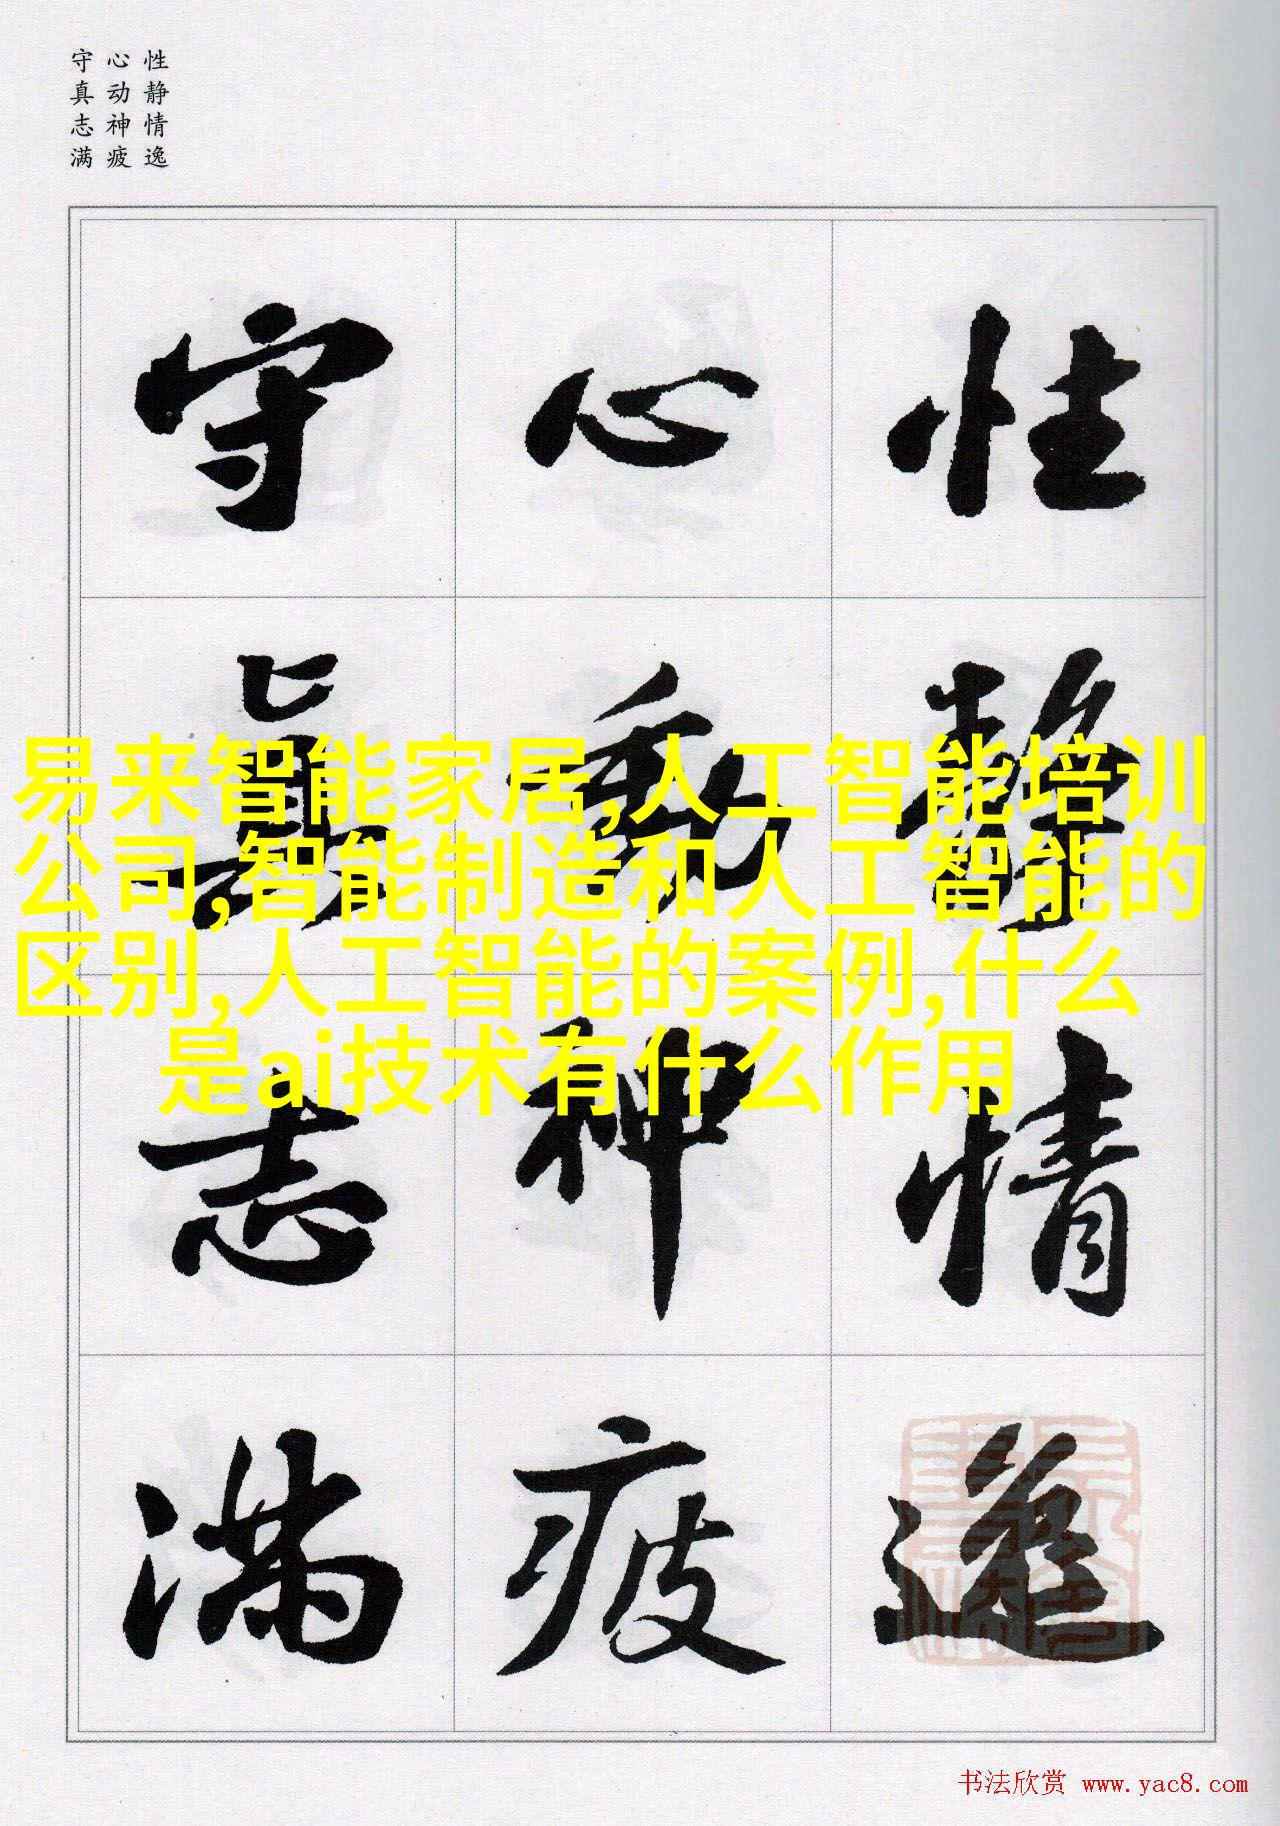 性静情逸
心动神疲
守真志满
性静情逸
心動神疲
守真志满
易来智能家居,人工智能培训
公司,智能制造和人工智能的
区别,人工智能的案例,什么
是ai技术有什么作用
书法欣赏 www.yac8.com